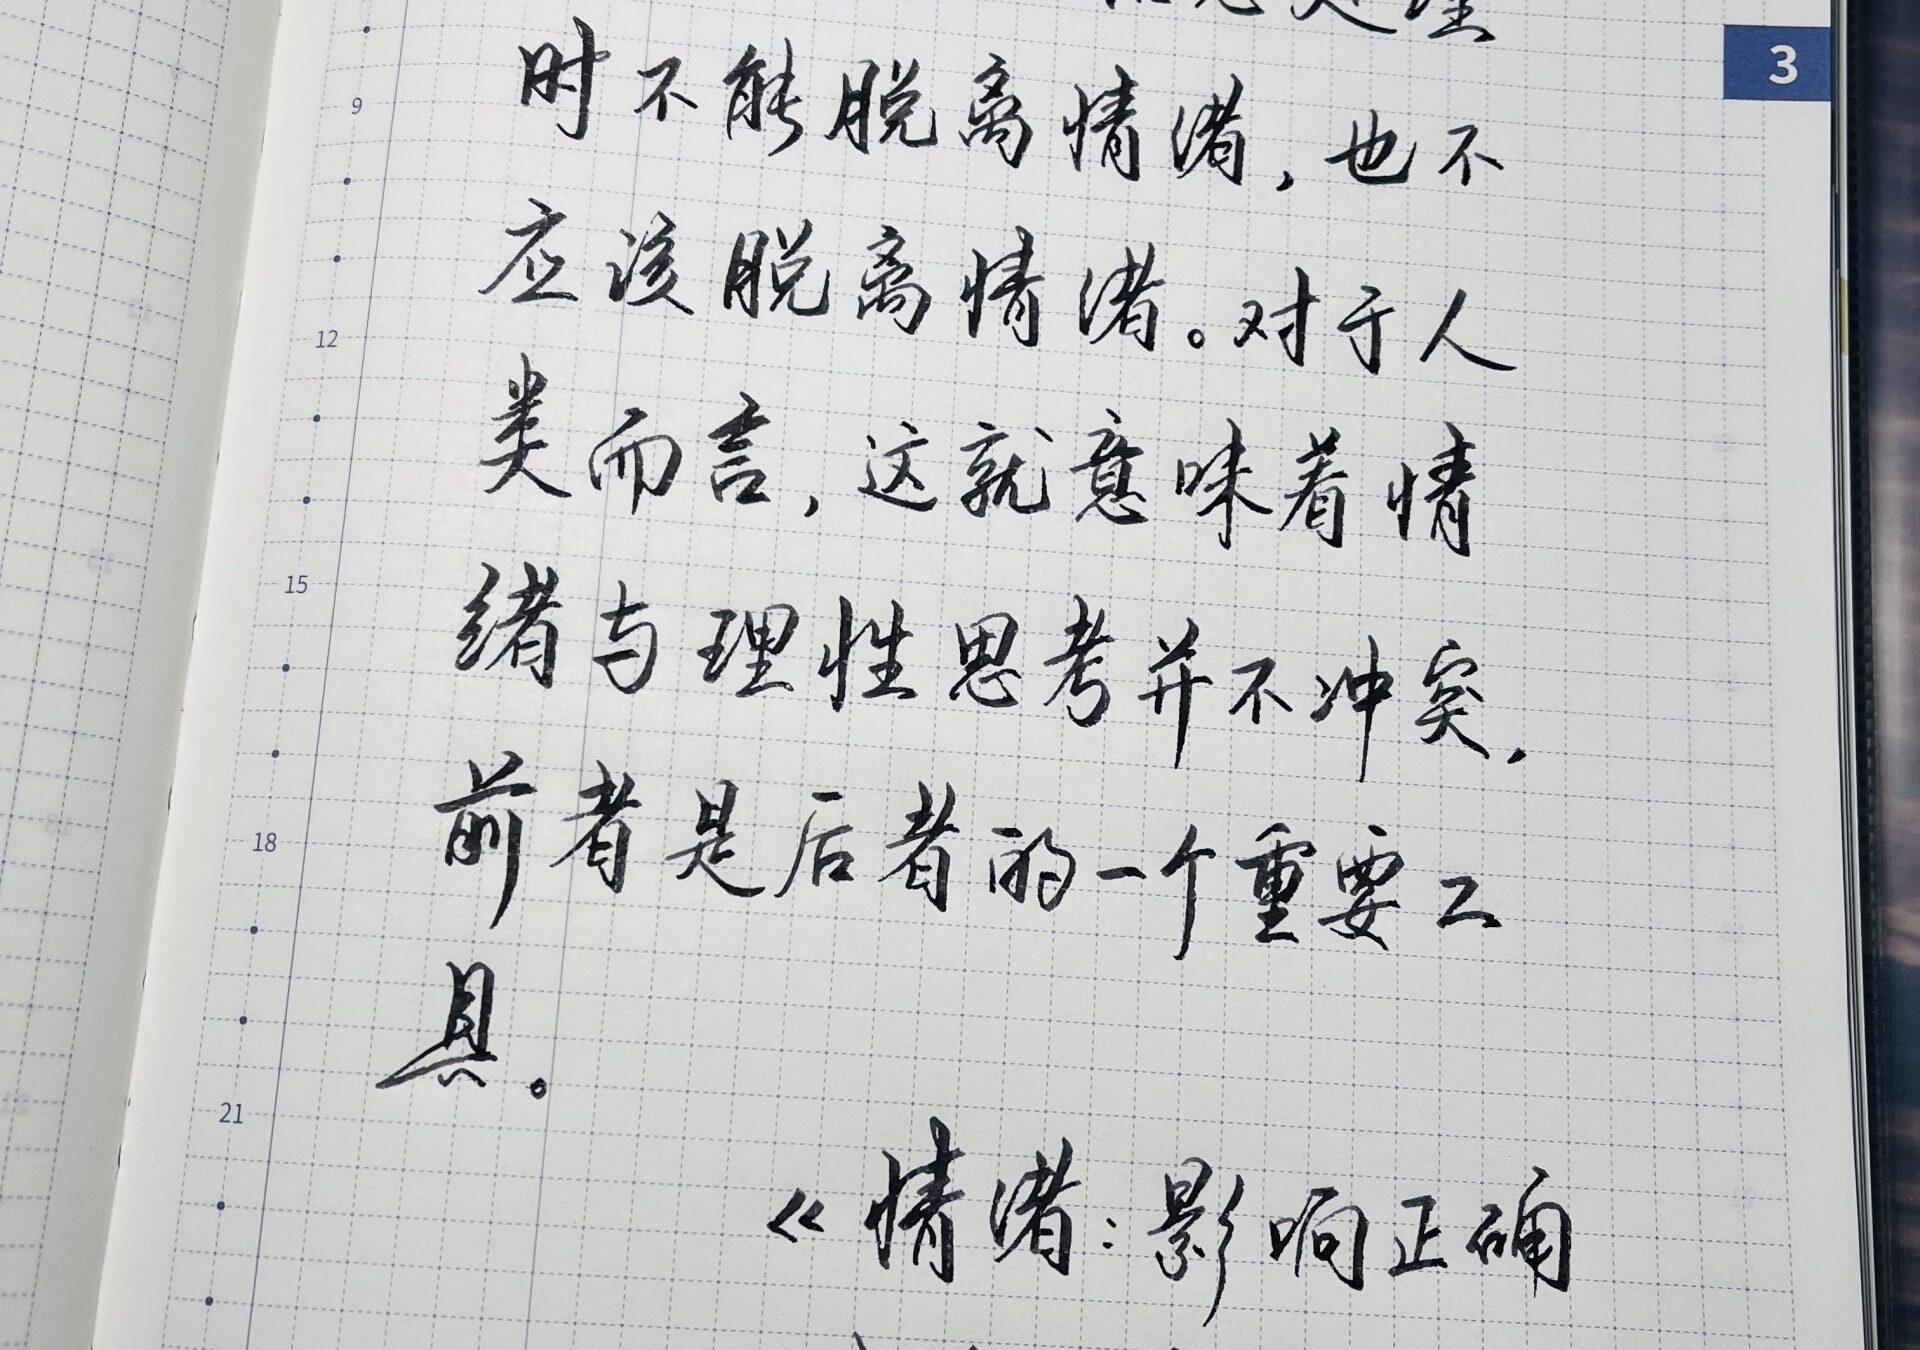 处理
3
时不能脱离情绪，也不
9
应该脱离情绪。对于人
12
类而言，这就意味着情
15
绪与理性思考并不冲突，
前者是后者的一个重要工
18
具。
21
《情绪：影响正确